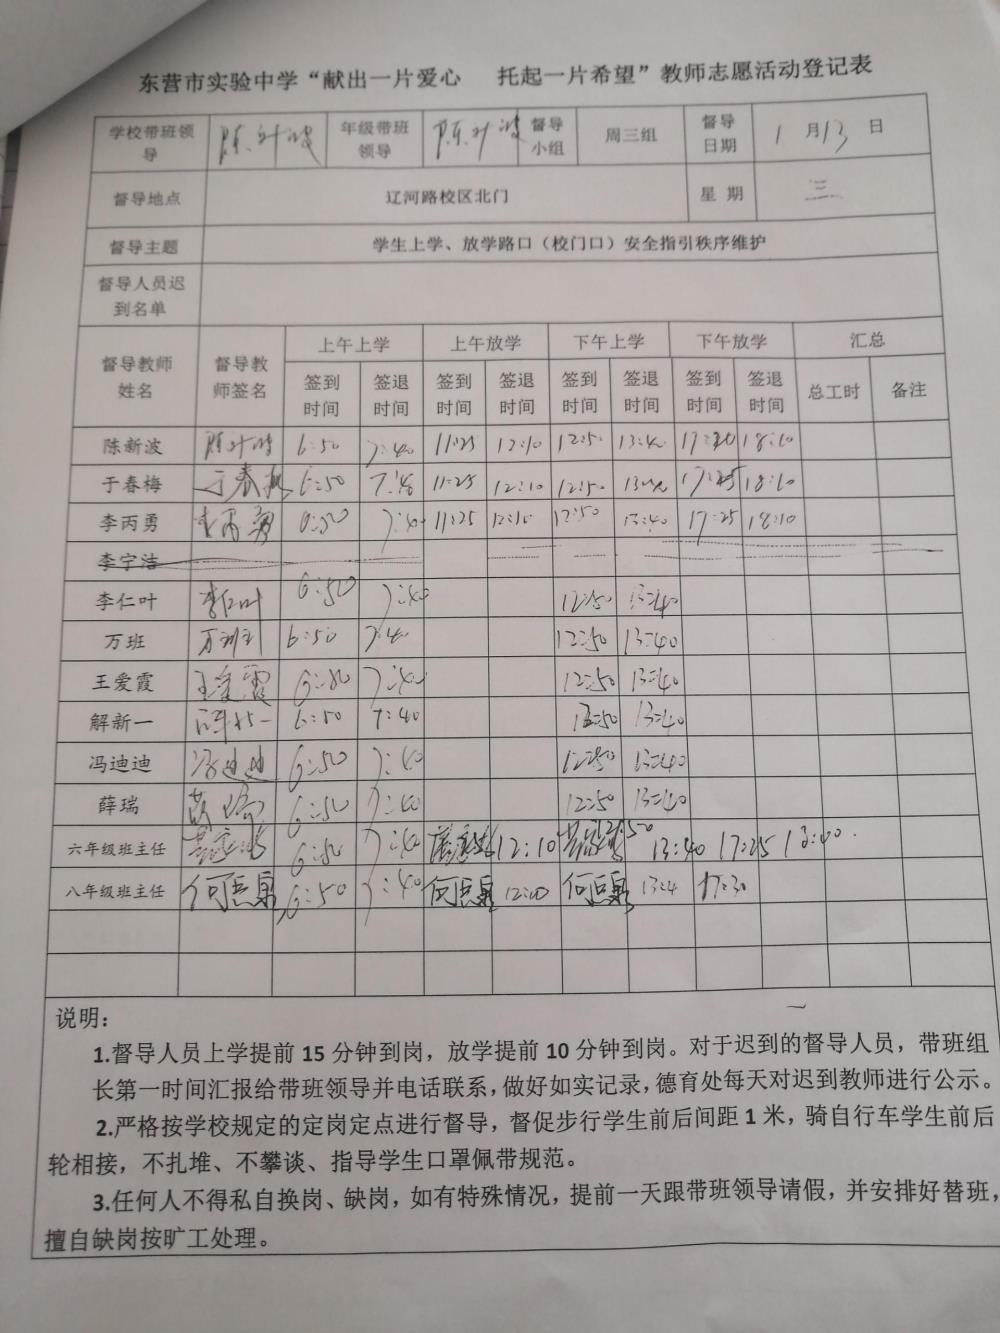 东营市实验中学“献出一片爱心 托起一片希望”教师志愿活动登记表
学校带班领导 陈新波 年级带班领导 陈新波 督导小组 周三组 督导日期 1月13日
督导地点 辽河路校区北门 星 期 三
督导主题 学生上学、放学路口（校门口）安全指引秩序维护
督导人员迟到名单
督导教师姓名 督导教师签名 上午上学 上午放学 下午上学 下午放学 汇总
签到时间 签退时间 签到时间 签退时间 签到时间 签退时间 签到时间 签退时间 总工时 备注
陈新波 陈新波 6:50 7:40 11:25 12:10 12:50 13:40 17:20 18:10
于春梅 于春梅 6:50 7:40 11:25 12:10 12:50 13:40 17:25 18:10
李丙勇 李丙勇 6:50 7:40 11:25 12:10 12:50 13:40 17:25 18:10
李宁洁
李仁叶 李仁叶 6:50 7:40 12:50 13:40
万班 万班 6:50 7:40 12:50 13:40
王爱霞 王爱霞 6:50 7:40 12:50 13:40
解新一 解新一 6:50 7:40 12:50 13:40
冯迪迪 冯迪迪 6:50 7:40 12:50 13:40
薛瑞 薛瑞 6:50 7:40 12:50 13:40
六年级班主任 6:50 7:40 12:10 13:40 17:25
八年级班主任 6:50 7:40 12:00 17:30
说明：
1.督导人员上学提前 15 分钟到岗，放学提前 10 分钟到岗。对于迟到的督导人员，带班组
长第一时间汇报给带班领导并电话联系，做好如实记录，德育处每天对迟到教师进行公示。
2.严格按学校规定的定岗定点进行督导，督促步行学生前后间距 1 米，骑自行车学生前后
轮相接，不扎堆、不攀谈、指导学生口罩佩带规范。
3.任何人不得私自换岗、缺岗，如有特殊情况，提前一天跟带班领导请假，并安排好替班，
擅自缺岗按旷工处理。